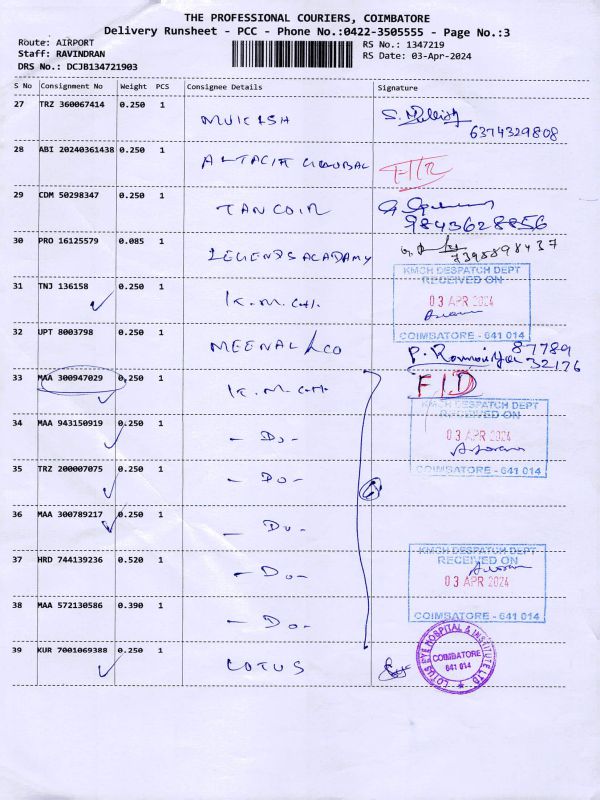 THE PROFESSIONAL COURIERS, COIMBATORE
Delivery Runsheet - PCC - Phone No.:0422-3505555 - Page No.:3
Route: AIRPORT
RS No.: 1347219
Staff: RAVINDRAN
RS Date: 03-Apr-2024
DRS No.: DCJB134721903
S No Consignment No Weight PCS Consignee Details Signature
27 TRZ 360067414 0.250 1 MUKESH
6374329808
28 ABI 20240361438 0.250 1 GLOUBAL
29 CDM 50298347 0.250 1 TANCOIR
9843628856
30 PRO 16125579 0.085 1 LEGENDS ACADEMY
7398898437
31 TNJ 136158 0.250 1 K.M.C.H.
KMCH DESPATCH DEPT
RECEIVED ON
03 APR 2024
COIMBATORE - 641 014
32 UPT 8003798 0.250 1 MEENAL & CO
P. 87789
32176
33 MAA 300947029 0.250 1 K.M.C.H. FID
KMCH DESPATCH DEPT
RECEIVED ON
34 MAA 943150919 0.250 1 - Do - 03 APR 2024
35 TRZ 200007075 0.250 1 - Do - COIMBATORE - 641 014
36 MAA 300789217 0.250 1 - Do -
KMCH DESPATCH DEPT
37 HRD 744139236 0.520 1 - Do - RECEIVED ON
03 APR 2024
38 MAA 572130586 0.390 1 - Do - COIMBATORE - 641 014
39 KUR 7001069388 0.250 1 LOTUS
LOTUS EYE HOSPITAL & INSTITUTE LTD
COIMBATORE
641 014